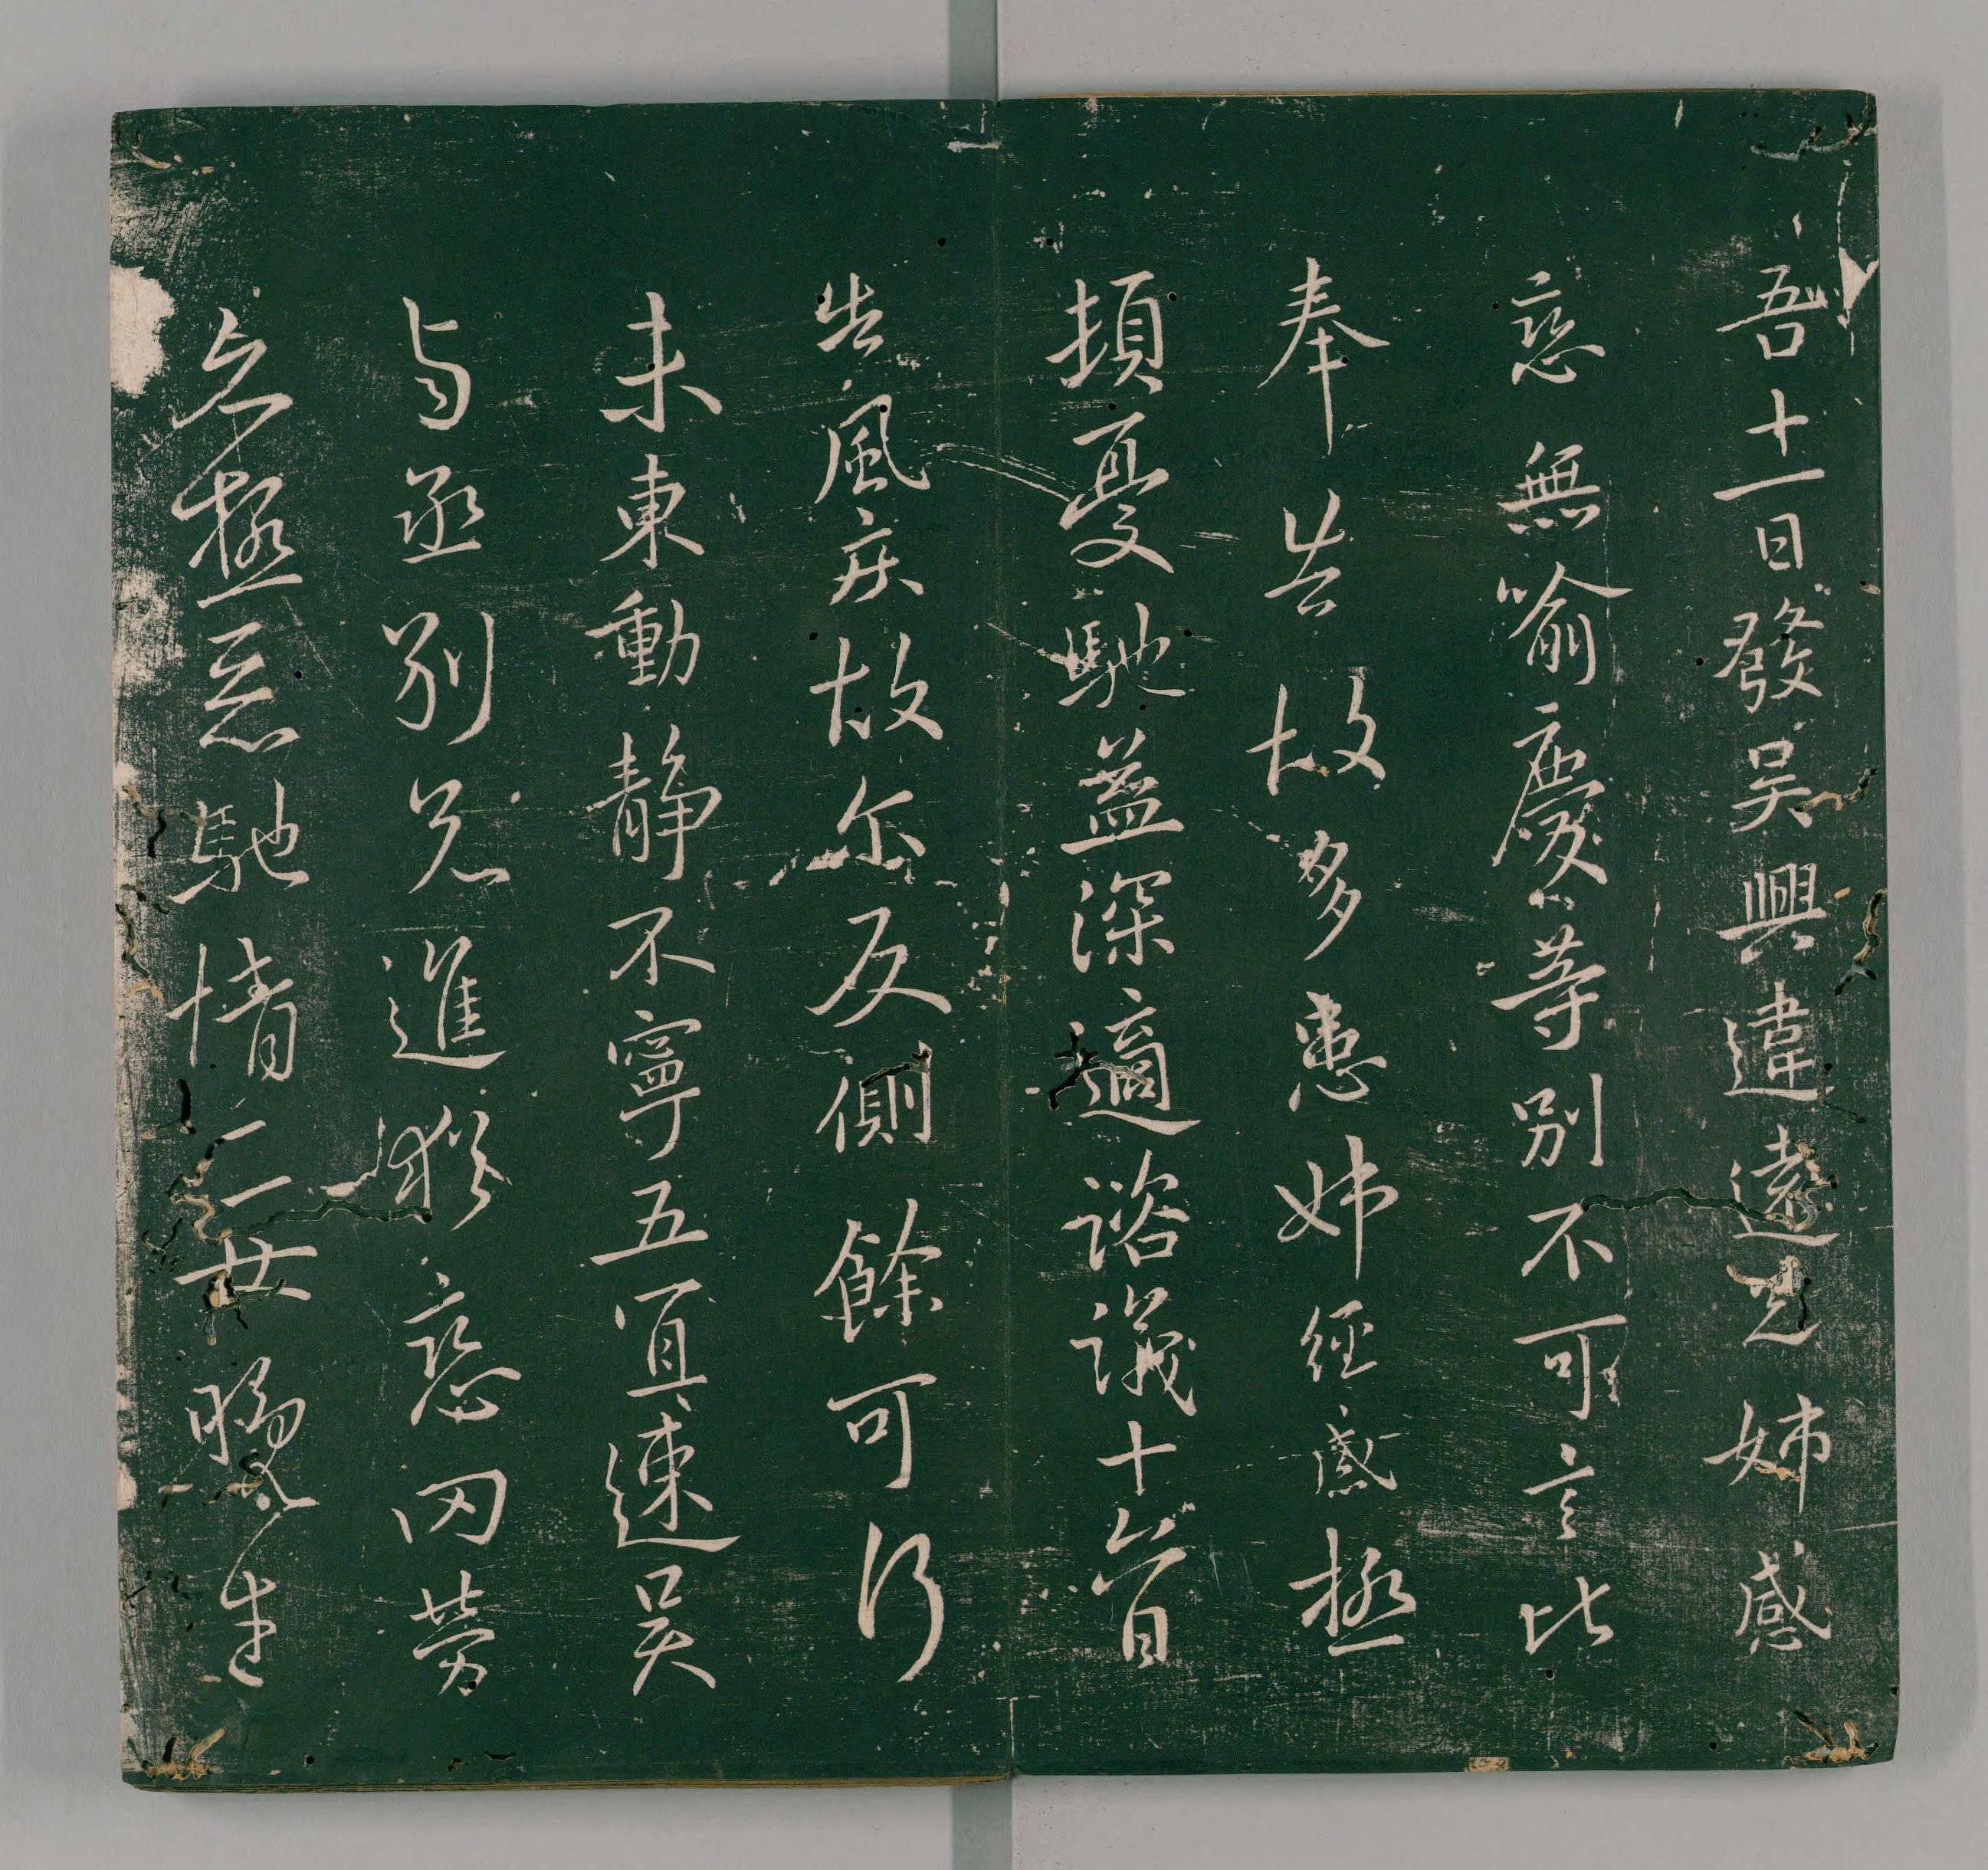 吾十一日發吳興違遠兄姊感
戀無喻慶等別不可言比
奉告故多患姊經感極
頓憂馳益深適諮議十二日
告風疾故尔反側餘可行
未東動靜不寧五宜速吳
与丞別兄進猶戀罔勞
亦極惡馳情二女晚生